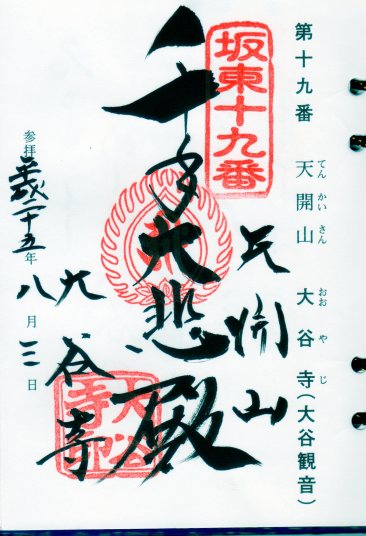 第十九番 天開山 大谷寺(大谷観音)
てんかいさん おおやじ
坂東十九番
天開山
千手大悲殿
大谷寺
大谷寺印
参拝 平成二十五年
八月三日